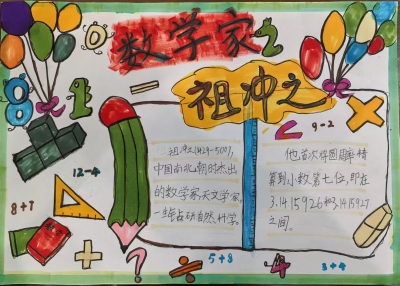 数学家
祖冲之
祖冲之(429-500),
中国南北朝时杰出
的数学家,天文学家。
一生钻研自然科学。
他首次将圆周率精
算到小数第七位,即在
3.1415926和3.1415927
之间。
9-2
12-4
8+7
5+8
3+4